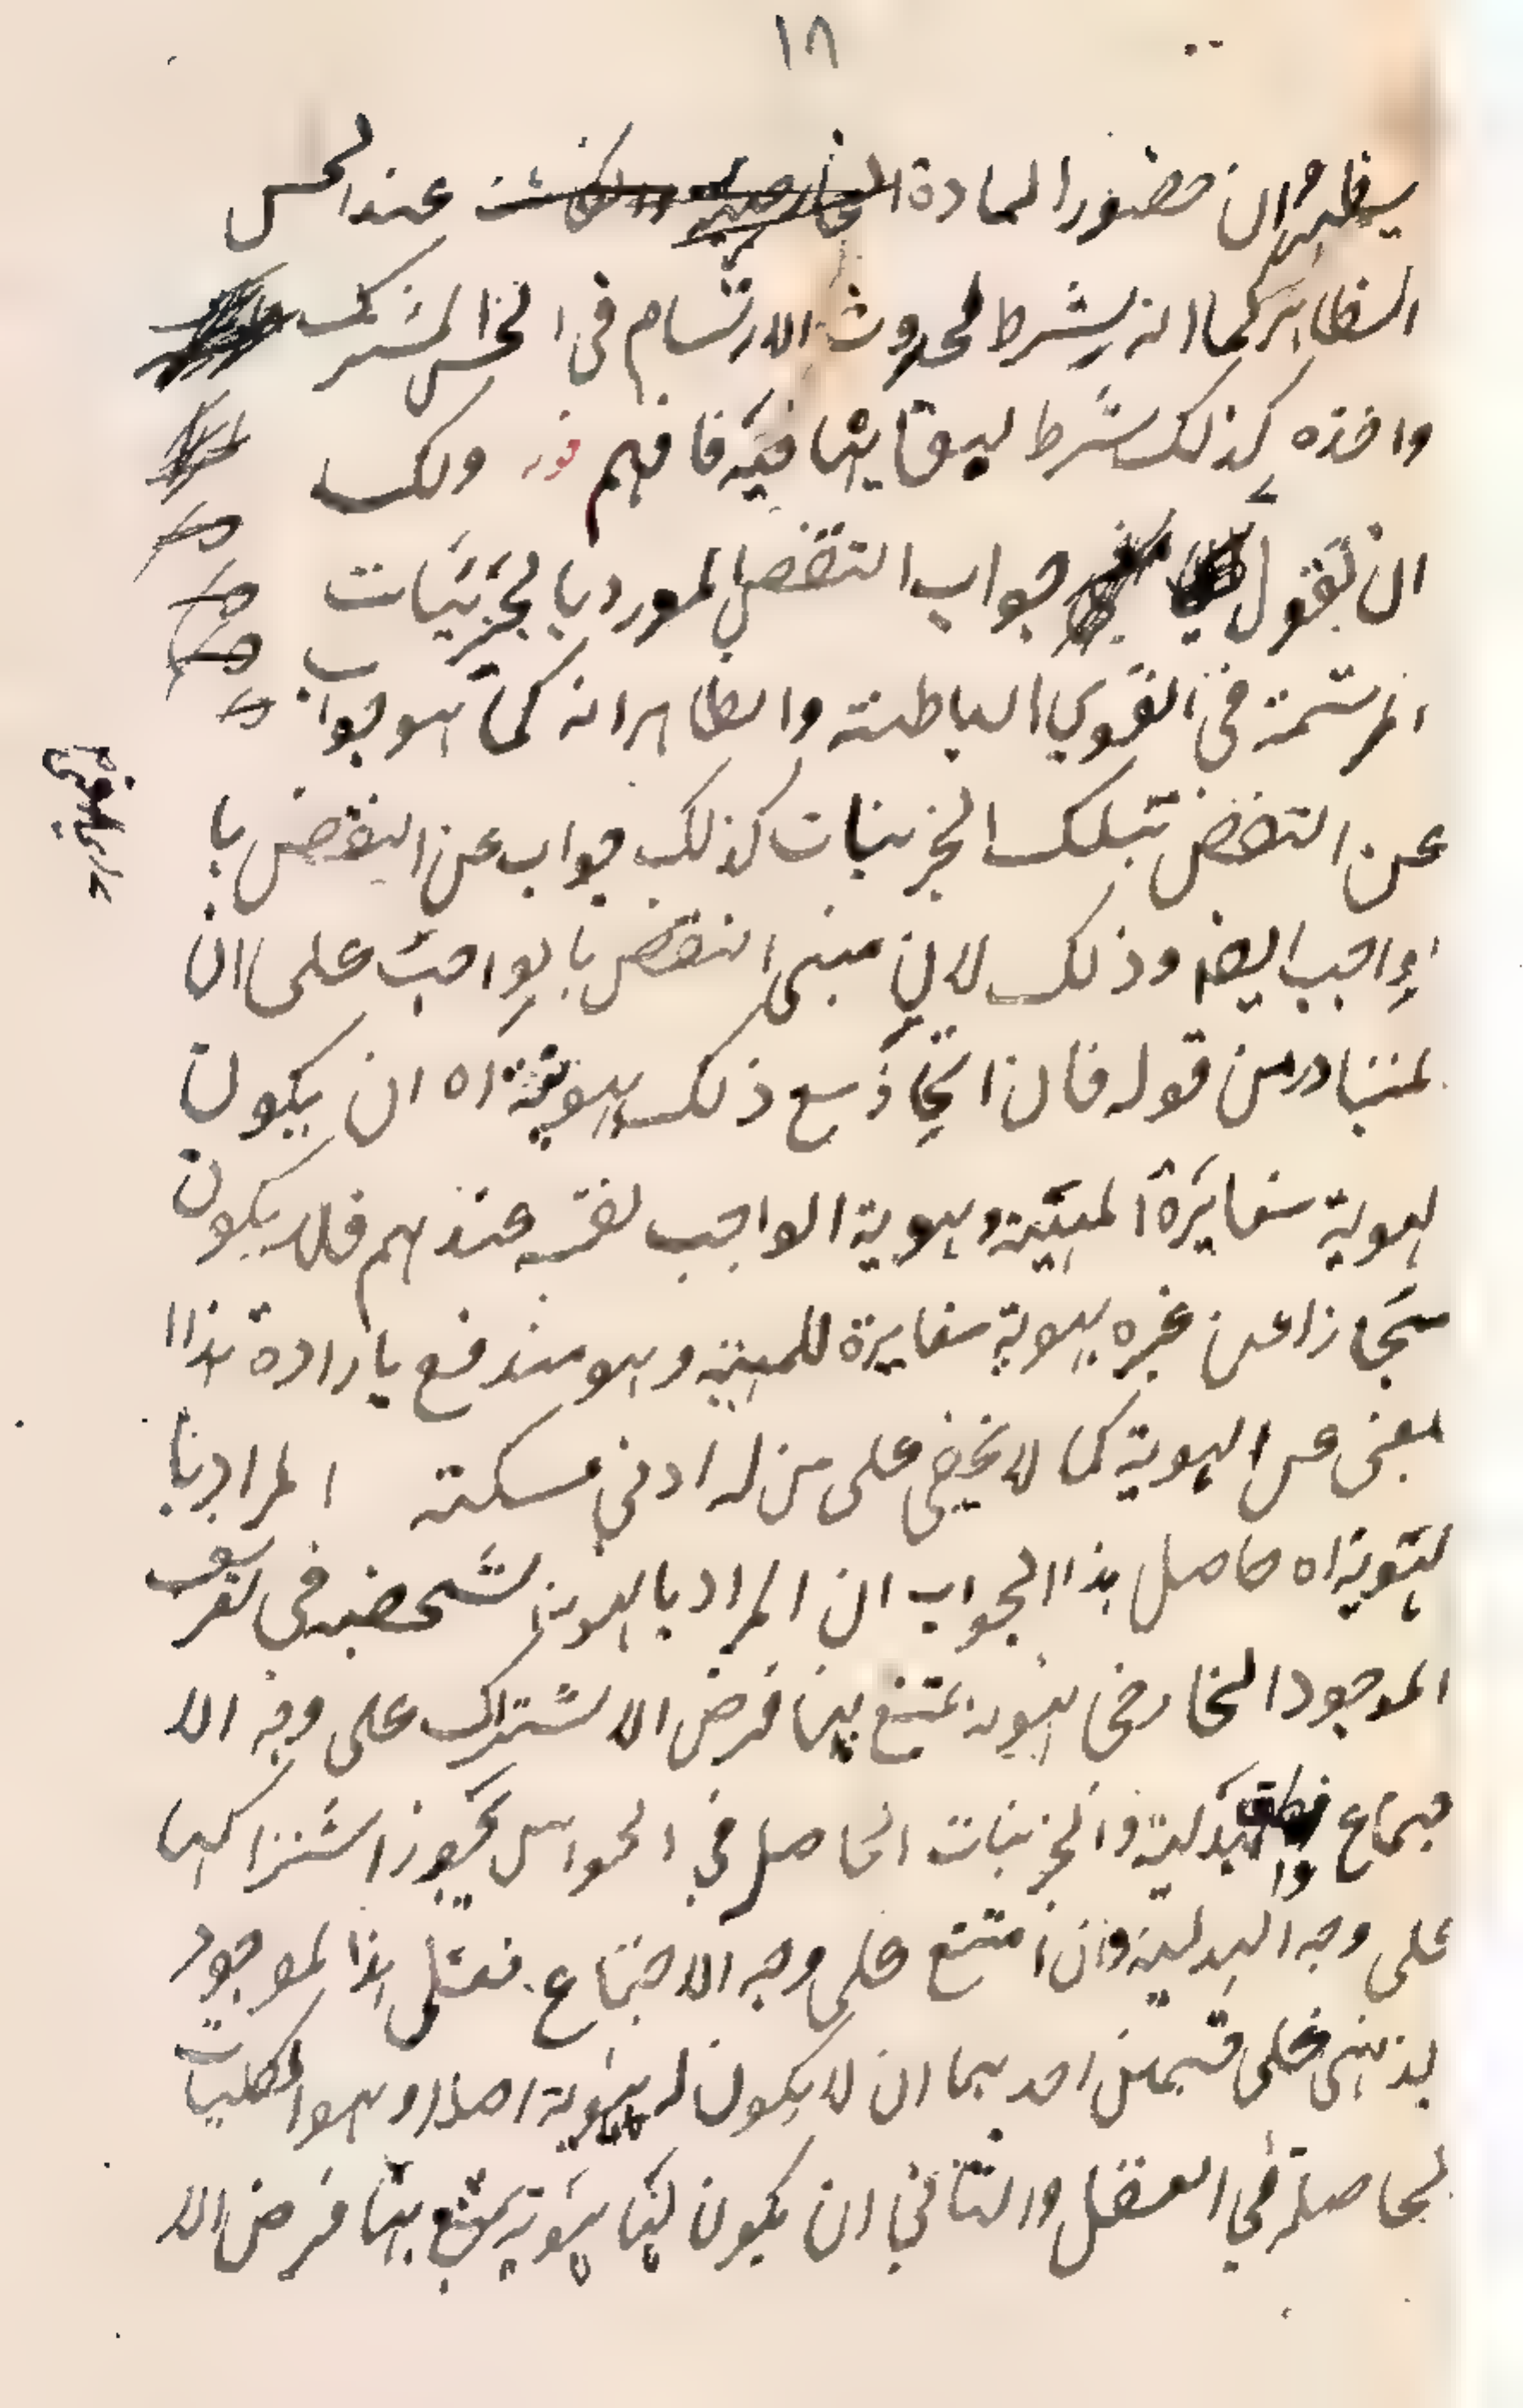 ١٨
سيظهر ان حضور المادة عند الحس
الظاهر كما انه يشرط لحدوث الارتسام في الحس المشترك
واخذه كذلك شرط لبقائها فيه فافهم قوله ولك
ان تقول جواب النقض المورد بالجزئيات
المرتسمة في القوى الباطنة والظاهر انه كما هو جواب
عن النقض بتلك الجزئيات كذلك جواب عن النقض با
لواجب ايضا وذلك لان مبنى النقض بالواجب على ان
لمتبادر من قوله فان انحاز مع ذلك بهوية اه ان يكون
لهوية مغايرة المهية وهوية الواجب نفسه عندهم فلا يكون
منحازا عن غيره بهوية مغايرة للمهية وهو مندفع بارادة هذا ا
لمعنى من الهوية كما لا يخفى على من له ادنى مسكته المراد بنا
لهوية اه حاصل هذا الجواب ان المراد بالهوية لشخصية في تعريف
الموجود الخارجي الهوية يمتنع بها فرض الاشتراك على وجه الا
جتماع والبدلية والجزئيات الحاصل في الحواس يجوز اشتراكها
على وجه البدلية وان امتنع على وجه الاجتماع فعلى هذا لموجود
لذهني على قسمين احدهما ان لا يكون له هوية اصلا وهو الكليات
لحاصلة في العقل والثاني ان يكون لها هوية يمتنع بها فرض الا